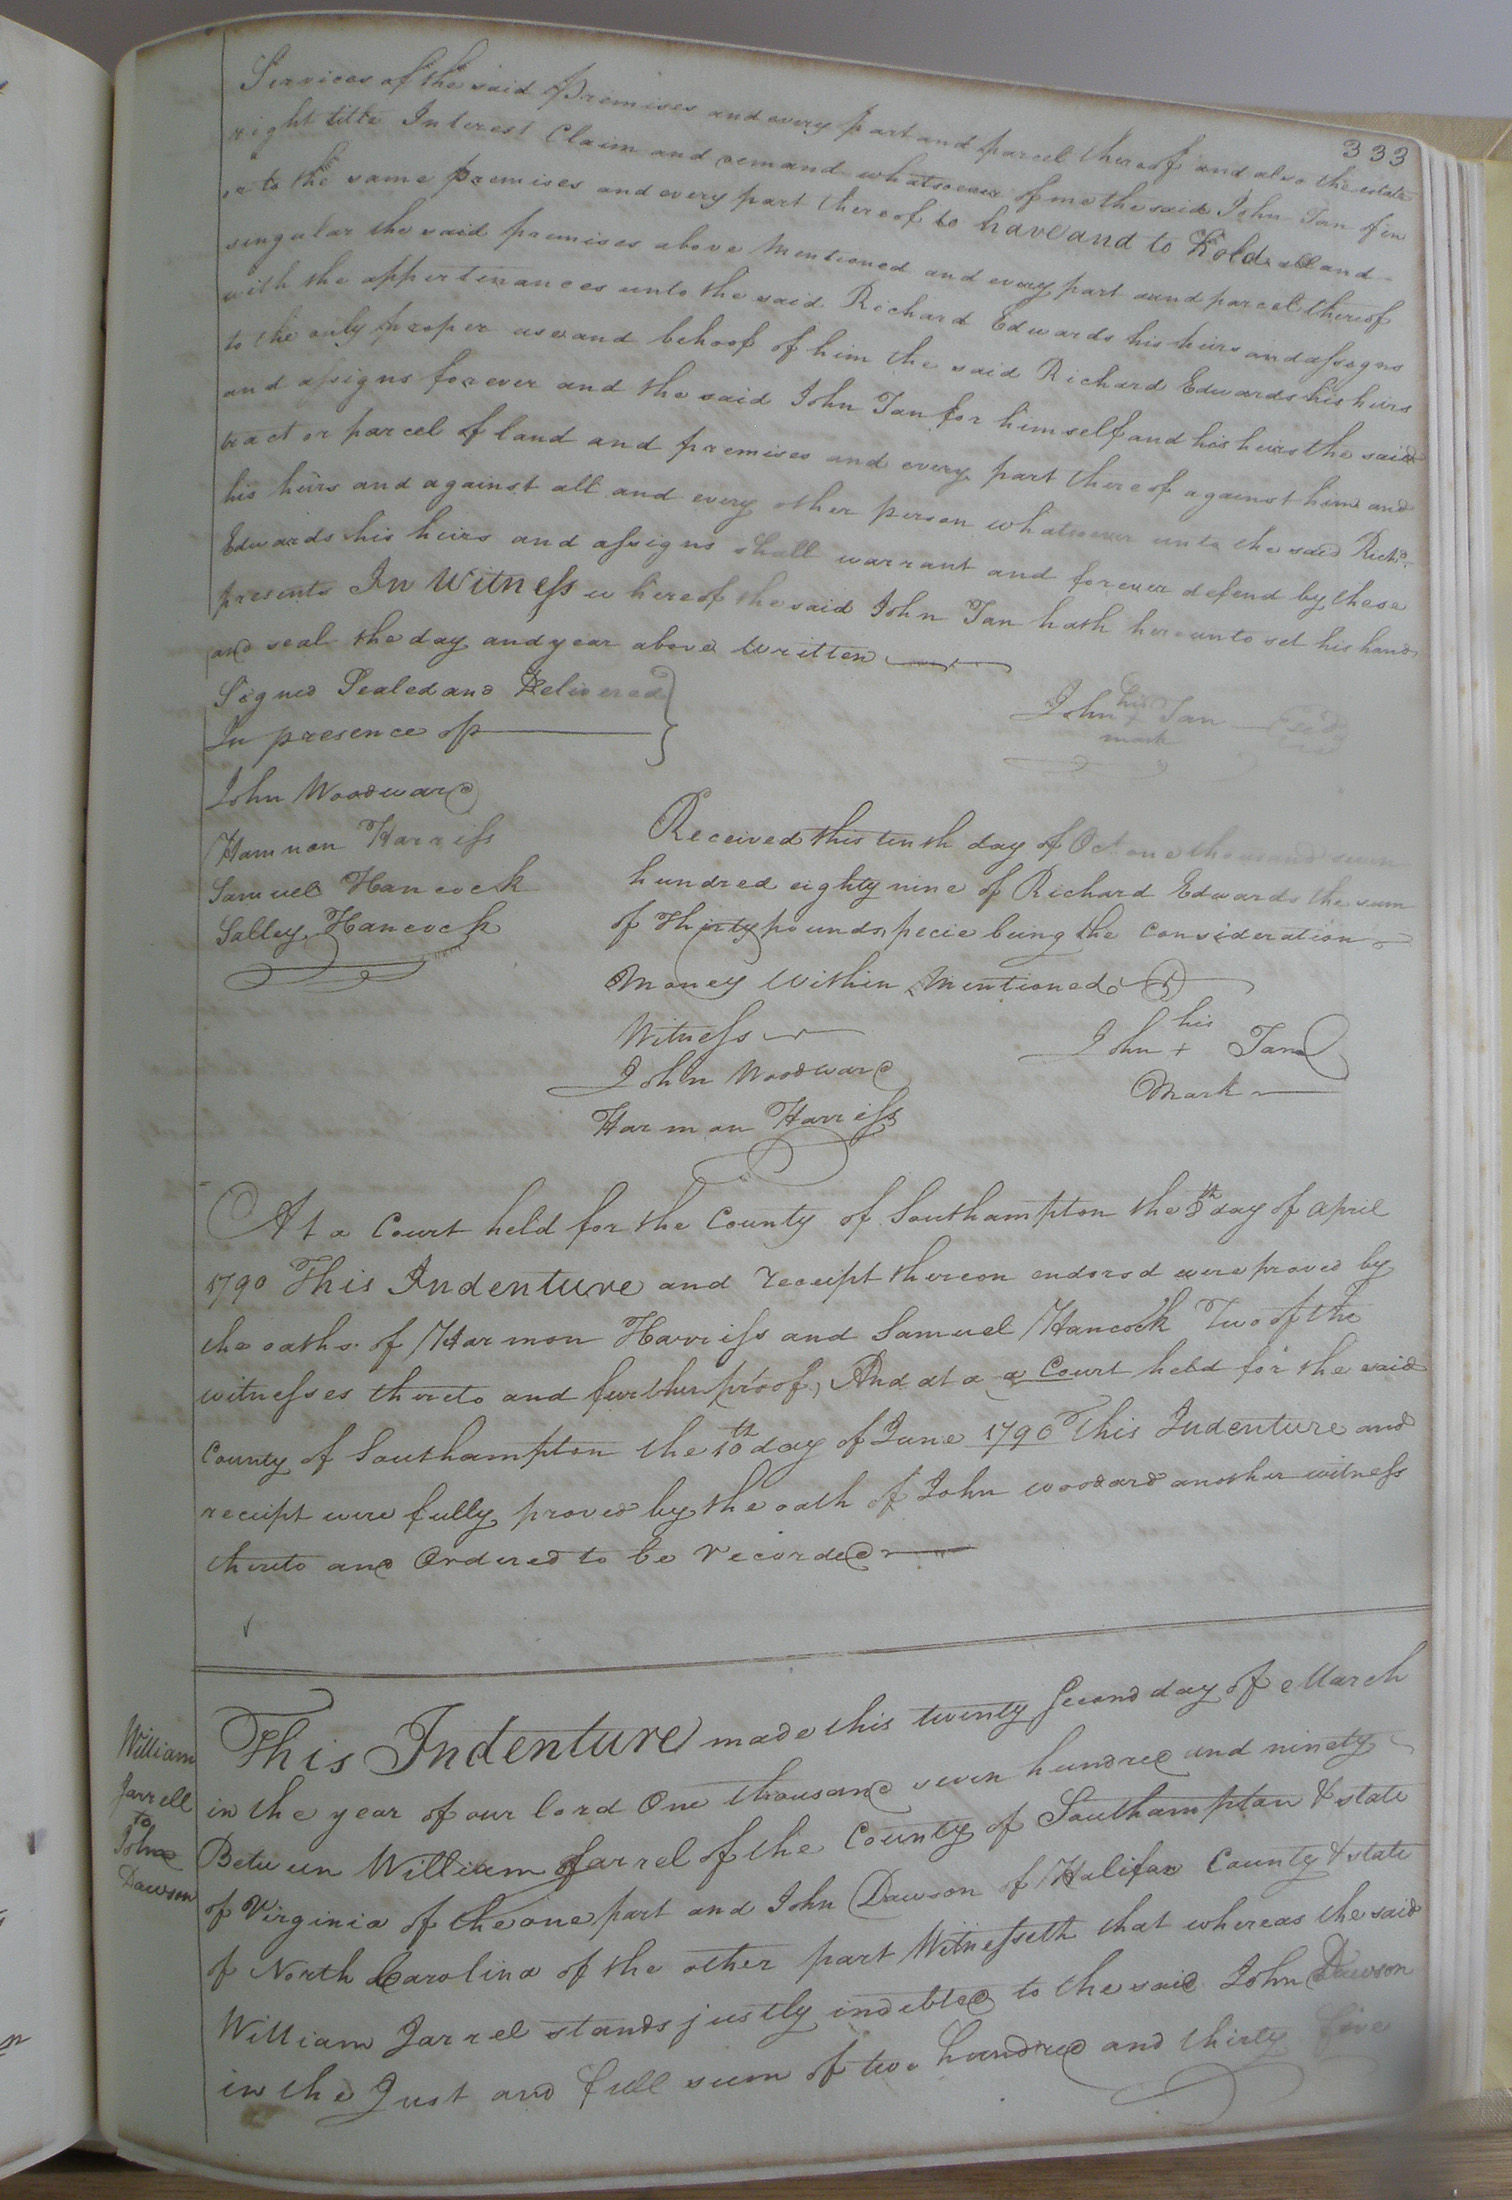 333
Services of the said premises and every part and parcel thereof and also the estate
right title Interest Claim and demand whatsoever of me the said John Tan of in
or to the same premises and every part thereof to have and to Hold all and
singular the said premises above Mentioned and every part and parcel thereof
with the appertenances unto the said Richard Edwards his heirs and assigns
to the only proper use and behoof of him the said Richard Edwards his heirs
and assigns forever and the said John Tan for himself and his heirs the said
tract or parcel of land and premises and every part thereof against him and
his heirs and against all and every other person whatsoever unto the said Richd.
Edwards his heirs and assigns shall warrant and forever defend by these
presents In Witness whereof the said John Tan hath hereunto set his hand
and seal the day and year above written
Signed Sealed and Delivered
In presence of
his
John + Tan
mark
John Woodward
Harmon Harriss
Samuel Hancock
Salley Hancock
Received this tenth day of Oct one thousand seven
hundred eighty nine of Richard Edwards the sum
of Thirty pounds specie being the Consideration
Money Within Mentioned
Witness
John Woodward
Harmon Harriss
his
John + Tan
Mark
At a Court held for the County of Southampton the 8th day of April
1790 This Indenture and receipt thereon endorsd were proved by
the oaths of Harmon Harriss and Samuel Hancock Two of the
witnesses thereto and further proof, And at a a Court held for the said
County of Southampton the 10th day of June 1790 This Indenture and
receipt were fully proved by the oath of John Woodard another witness
thereto and Ordered to be recorded
William
Jarrell
to
John
Dawson
This Indenture made this twenty Second day of March
in the year of our lord One thousand seven hundred and ninety
Between William Jarrel of the County of Southampton & state
of Virginia of the one part and John Dawson of Halifax County & state
of North Carolina of the other part Witnesseth that whereas the said
William Jarrel stands justly indebted to the said John Dawson
in the Just and full sum of two hundred and thirty five